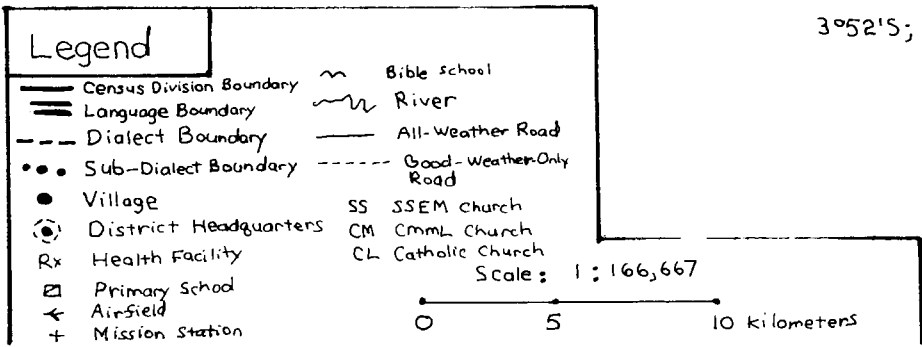 3°52'S;
Legend
Census Division Boundary
Language Boundary
Dialect Boundary
Sub-Dialect Boundary
Village
District Headquarters
Rx Health Facility
Primary School
Airfield
Mission Station
Bible school
River
All-Weather Road
Good-Weather-Only
Road
SS SSEM Church
CM CMML Church
CL Catholic Church
Scale: 1:166,667
0 5 10 kilometers